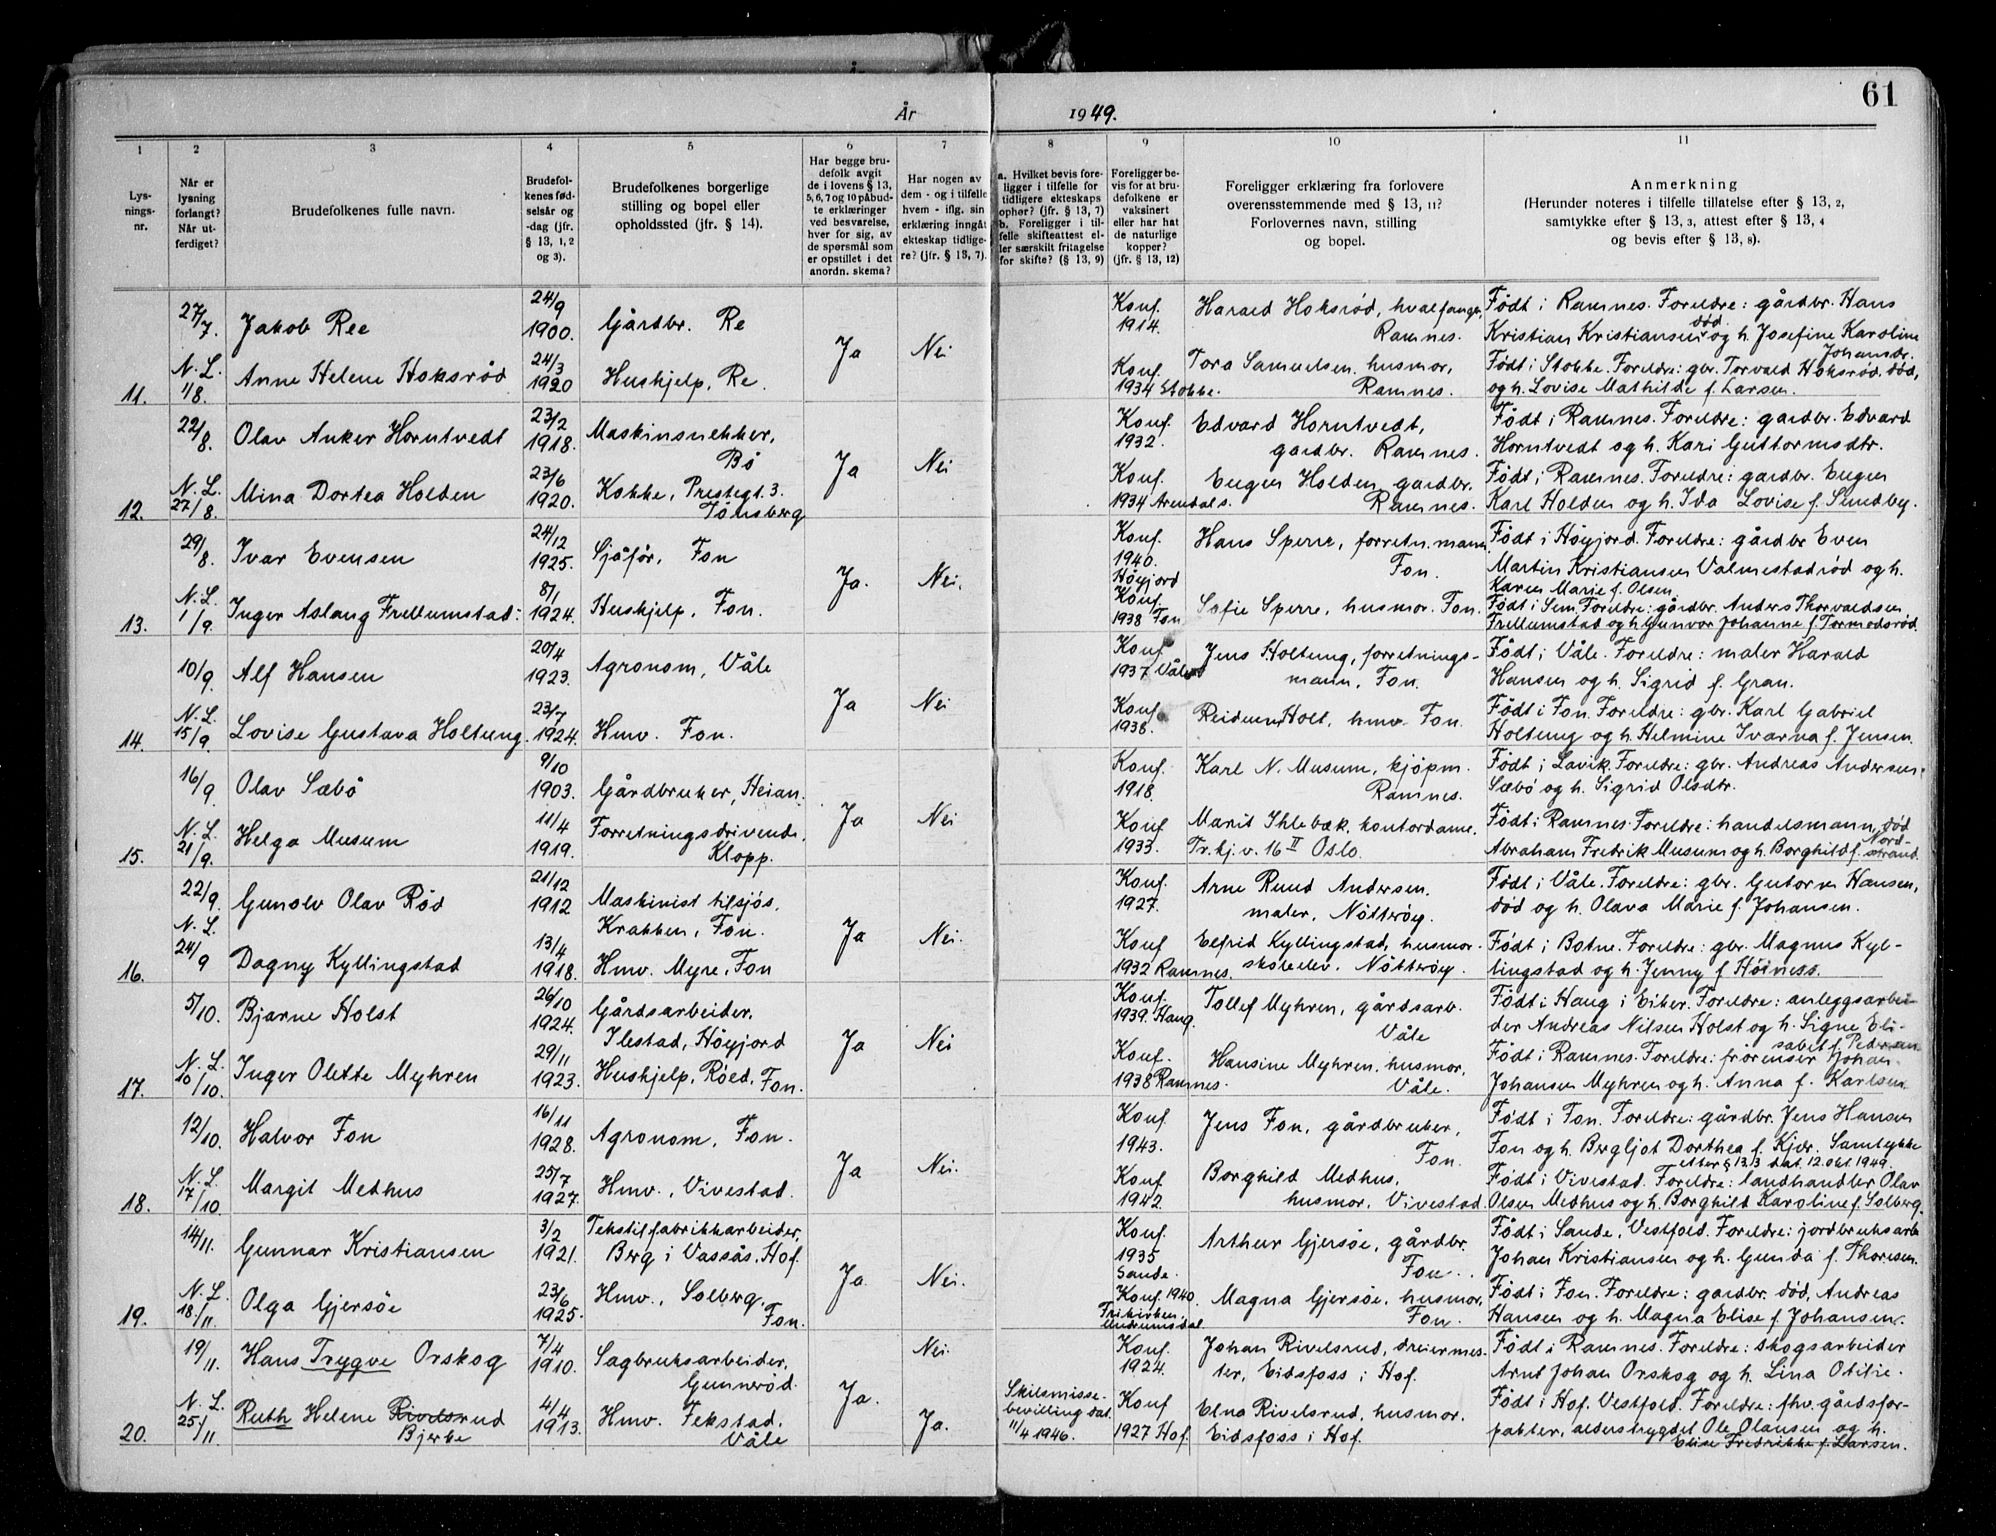 61
År 1949.
1
Lys-
nings-
nr.
2
Når er
lysning
forlangt?
Når ut-
ferdiget?
3
Brudefolkenes fulle navn.
4
Brudefol-
kenes fød-
selsår og
-dag (jfr.
§ 13, 1, 2
og 3).
5
Brudefolkenes borgerlige
stilling og bopel eller
opholdssted (jfr. § 14).
6
Har begge bru-
defolk avgit
de i lovens § 13,
5, 6, 7 og 10 påbud-
te erklæringer
ved besvarelse,
hver for sig, av
de spørsmål som
er opstillet i det
anordn. skema?
7
Har nogen av
dem - og i tilfelle
hvem - iflg. sin
erklæring inngått
ekteskap tidlige-
re? (jfr. § 13, 7).
8
a. Hvilket bevis fore-
ligger i tilfelle for
tidligere ekteskaps
ophør? (jfr. § 13, 7)
b. Foreligger i til-
felle skifteattest el-
ler særskilt fritagelse
for skifte? (§ 13, 9)
9
Foreligger be-
vis for at bru-
defolkene er
vaksinert
eller har hat
de naturlige
kopper?
(jfr. § 13, 12)
10
Foreligger erklæring fra forlovere
overensstemmende med § 13, 11?
Forlovernes navn, stilling
og bopel.
11
Anmerkning
(Herunder noteres i tilfelle tillatelse efter § 13, 2,
samtykke efter § 13, 3, attest efter § 13, 4
og bevis efter § 13, 8).
11.
27/7.
N. L.
1/8.
Jakob Ree
24/9
1900.
Gårdbr. Re
Ja
Nei
Konf.
1914.
Harald Hoksrød, hvalfanger,
Ramnes.
Født i Ramnes. Foreldre: gårdbr. Hans
Kristian Kristiansen død og h. Josefine Karoline
Johansdr.
Anne Helene Hoksrød
24/3
1920
Hushjelp, Re.
Konf.
1934 Stokke.
Tora Samuelsen, husmor,
Ramnes.
Født i Stokke. Foreldre: gbr. Torvald Hoksrød, død,
og h. Lovise Mathilde f. Larsen.
12.
22/8.
N. L.
27/8.
Olav Anker Horntvedt
23/2
1918.
Maskinsnekker,
Bö
Ja
Nei
Konf.
1932.
Edvard Horntvedt,
gardbr. Ramnes.
Født i Ramnes. Foreldre: gardbr. Edvard
Horntvedt og h. Kari Guttormsdtr.
Mina Dortea Holden
23/6
1920.
Kokke, Prestegt. 3.
Tönsberg
Konf.
1934 Arendals.
Eugen Holden, gardbr.
Ramnes.
Født i Ramnes. Foreldre: gardbr. Eugen
Karl Holden og h. Ida Lovise f. Sundby.
13.
29/8.
N. L.
1/9.
Ivar Evensen
24/12
1925.
Sjåfør, Fon
Ja.
Nei.
Konf.
1940.
Høyjord
Hans Sperre, forretn.mann
Fon.
Født i Høyjord. Foreldre: gårdbr Even
Martin Kristiansen Valmestadrød og h.
Karen Marie f. Olsen.
Inger Aslaug Frellumstad.
8/1
1924.
Hushjelp, Fon.
Konf.
1938 Fon
Sofie Sperre, husmor. Fon.
Født i Sem. Foreldre: gårdbr. Anders Thorvaldsen
Frellumstad og h. Gunvor Johanne f. Tormodsrød.
14.
10/9.
N. L.
15/9.
Alf Hansen
20/4
1923.
Agronom, Våle
Ja
Nei
Konf
1937 Våle
Jens Holtung, forretnings-
mann, Fon.
Født i Våle. Foreldre: maler Harald
Hansen og h. Sigrid f. Gran.
Lovise Gustava Holtung.
23/7
1924.
Hmv. Fon.
Konf
1938.
Reidun Holt, hmv. Fon.
Født i Fon. Foreldre: gbr. Karl Gabriel
Holtung og h. Helmine Ivarna f. Jensen.
15.
16/9.
N. L.
21/9.
Olav Sæbö
9/10
1903.
Gårdbruker, Heian.
Ja
Nei
Konf.
1918.
Karl N. Musum, kjöpm.
Ramnes.
Født i Lavik. Foreldre: gbr. Andreas Andersen
Sæbö og h. Sigrid Olsdtr.
Helga Musum
11/4
1919.
Forretningsdrivende,
Klopp.
Konf
1933.
Marit Ihlebæk, kontordame.
Tr.hj. v. 16 II Oslo.
Født i Ramnes. Foreldre: handelsmann, død
Abraham Fredrik Musum og h. Borghild f. Nord-
strand.
16.
22/9.
N. L.
24/9
Gunolv Olav Röd
21/12
1912
Maskinist tilsjøs,
Krakken, Fon.
Ja
Nei.
Konf
1927.
Arne Ruud Andersen.
maler, Nötteröy.
Født i Våle. Foreldre: gbr. Gutorm Hansen,
død og h. Olava Marie f. Johansen.
Dagny Kyllingstad
13/4
1918.
Hmv. Myre, Fon
Konf
1932 Ramnes.
Elfrid Kyllingstad, husmor-
skoleelev. Nötteröy.
Født i Botne. Foreldre: gbr. Magnus Kyl-
lingstad og h. Jenny f. Höiness.
17.
5/10.
N. L.
10/10.
Bjarne Holst
26/10
1924.
Gårdsarbeider,
Ilestad, Høyjord
Ja
Nei
Konf.
1939. Haug.
Tollef Myhren, gårdsarb.
Våle
Født i Haug i Eiker. Foreldre: anleggsarbei-
der Andreas Nilsen Holst og h. Signe Eli-
sabet f. Pedersen
Inger Olette Myhren
29/11
1923.
Hushjelp, Röed, Fon.
Konf.
1938 Ramnes.
Hansine Myhren, husmor,
Våle.
Født i Ramnes. Foreldre: frørenser Johan
Johansen Myhren og h. Anna f. Karlsen
18.
12/10.
N. L.
17/10.
Halvor Fon
16/11
1928.
Agronom, Fon.
Ja
Nei.
Konf
1943.
Jens Fon, gårdbruker,
Fon.
Født i Fon. Foreldre: gårdbr. Jens Hansen
Fon og h. Bergljot Dorthea f. Kjær. Samtykke
etter § 13.3 dat. 12. okt. 1949.
Margit Medhus
25/7
1927.
Hmv., Vivestad.
Konf
1942.
Borghild Medhus,
husmor, Vivestad
Født i Vivestad. Foreldre: landhandler Olav
Olsen Medhus og h. Borghild Karoline f. Solberg.
19.
14/11.
N. L.
18/11.
Gunnar Kristiansen
3/2
1921.
Tekstilfabrikkarbeider,
Berg i Vassås, Hof.
Ja.
Nei.
Konf
1935
Sande.
Arthur Gjersöe, gårdbr.
Fon.
Født i Sande, Vestfold. Foreldre: jordbruksarb
Johan Kristiansen og h. Gunda f. Thoresen.
Olga Gjersöe
23/6
1925.
Hmv., Solberg,
Fon.
Konf. 1940.
Frikirken,
Undrumsdal.
Magna Gjersöe, husmor,
Fon.
Født i Fon. Foreldre: gardbr. død, Andreas
Hansen og h. Magna Elise f. Johansen.
20.
19/11.
N. L.
25/11.
Hans Trygve Orskog
7/4
1910.
Sagbruksarbeider,
Gunneröd.
Ja.
Nei.
Konf.
1924.
Johan Rivelsrud, dreiermes-
ter, Eidsfoss i Hof.
Født i Ramnes. Foreldre: skogsarbeider
Arnt Johan Orskog og h. Lina Otilie.
Ruth Helene Rivelsrud
Bjerke
4/4
1913.
Hmv. Tekstad,
Våle
Ja.
Skilsmisse-
bevilling dat.
11/4 1946.
Konf
1927 Hof.
Elna Rivelsrud, husmor.
Eidsfoss i Hof.
Født i Hof. Vestfold. Foreldre: fhv. gårdsfor-
pakter, alderstrygdet Ole Olausen og h.
Elise Fredrikke f. Larsen.